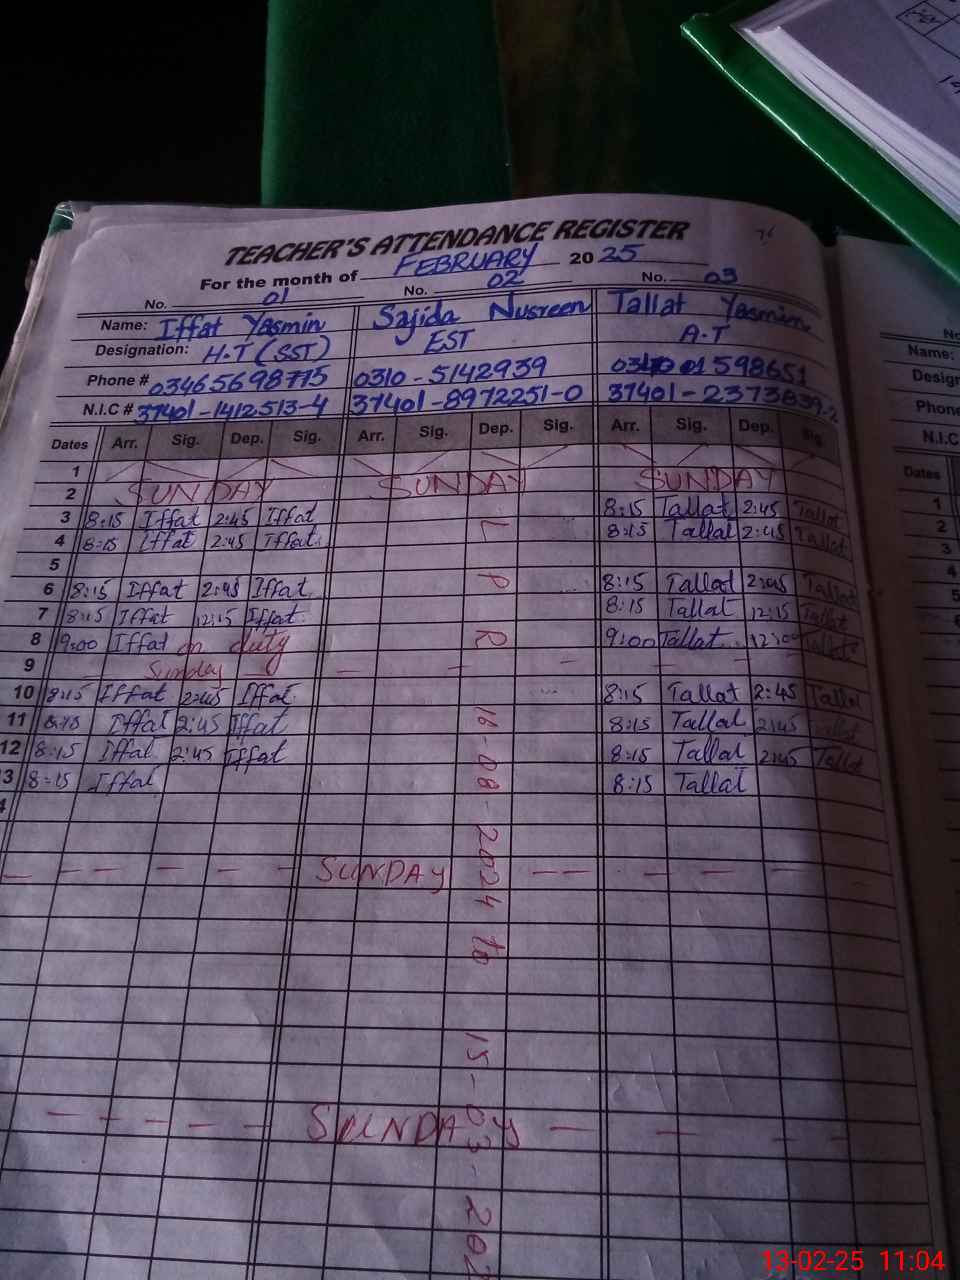 TEACHER'S ATTENDANCE REGISTER
For the month of FEBRUARY 20 25
No. 01 No. 02 No. 03
Name: Iffat Yasmin Sajida Nusreen Tallat Yasmin
Designation: H.T (SST) EST A.T
Phone # 03465698775 0310-5142939
N.I.C # 37401-1412513-4 37401-8972251-0 37401-2373839-2
Dates Arr. Sig. Dep. Sig. Arr. Sig. Dep. Sig. Arr. Sig. Dep. Sig
1
2 SUNDAY SUNDAY SUNDAY
3 8:15 Iffat 2:45 Iffat 8:15 Tallat 2:45 Tallat
4 8:15 Iffat 2:45 Iffat L 8:15 Tallat 2:45 Tallat
5
6 8:15 Iffat 2:45 Iffat P 8:15 Tallat 2:45 Tallat
7 8:15 Iffat 12:15 Iffat 8:15 Tallat 12:15 Tallat
8 9:00 Iffat on duty R 9:00 Tallat 12:00 Tallat
9 Sunday
10 8:15 Iffat 2:45 Iffat 8:15 Tallat 2:45 Tallat
11 8:15 Iffat 2:45 Iffat 8:15 Tallat 2:45 Tallat
12 8:15 Iffat 2:45 Iffat 8:15 Tallat 2:45 Tallat
3 8:15 Iffat 8:15 Tallat
4
16-08-2024 to 15-03-202
SUNDAY
SUNDAY
No
Name:
Desig
Phone
N.I.C
Dates
1
2
3
4
5
13-02-25 11:04